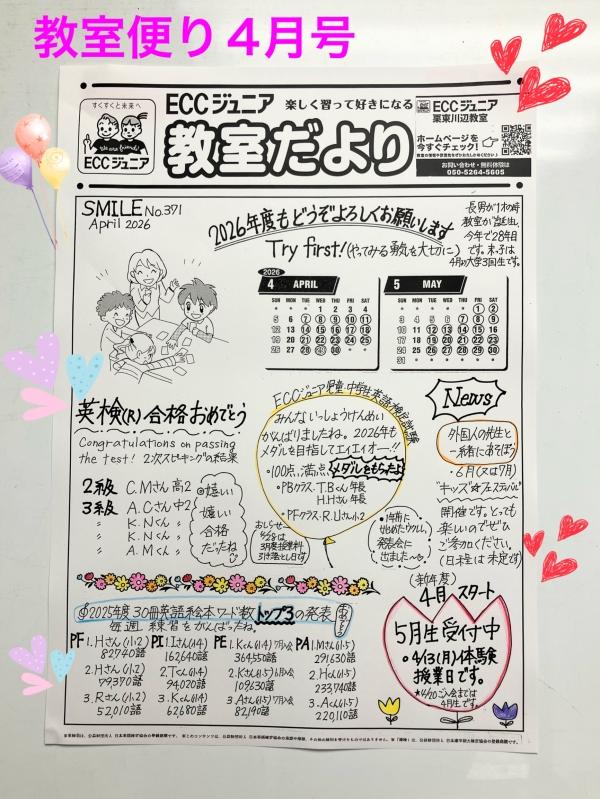 教室便り４月号
すくすくと未来へ
We are friends!
ECCジュニア
ECCジュニア 楽しく習って好きになる
教室だより
ECCジュニア
栗東川辺教室
ホームページを
今すぐチェック!
お問い合わせ・無料体験は
050-5264-5605
SMILE No.371
April 2026
2026年度もどうぞよろしくお願いします
Try first!(やってみる勇気を大切に)
長男が1才の時
教室が誕生し、
今年で28年目
です。末子は
4月から大学3回生です。
2026
4 APRIL
SUN MON TUE WED THU FRI SAT
1 2 3 4
5 6 7 8 9 10 11
12 13 14 15 16 17 18
19 20 21 22 23 24 25
26 27 28 29 30
5 MAY
SUN MON TUE WED THU FRI SAT
1 2
3 4 5 6 7 8 9
10 11 12 13 14 15 16
17 18 19 20 21 22 23
24 25 26 27 28 29 30
31
英検(R)合格おめでとう
Congratulations on passing
the test! 2次スピーキングの結果
2級 C.Mさん高2
3級 A.Cさん中2
〃 K.Nくん 〃
〃 K.Nくん 〃
〃 A.Mくん 〃
嬉しい
嬉しい
合格
だったね
ECCジュニア児童・中学生英語検定試験
みんないっしょうけんめい
がんばりましたね。2026年も
メダルを目指してエイエイオー!!
・100点満点 メダルをもらったよ
・PBクラス・T.Bくん年長
H.Hさん年長
・PFクラス・R.Uさん小2
おしらせ
4/28は
3月度授業料
引き落と日です
・1年前に
始めたウクレレ、
発表会に
出ました〜
News
外国人の先生と
一緒にあそぼう
・6月(又は7月)
"キッズ☆フェスティバル"
開催です。とっても
楽しいのでぜひ
ご参加ください。
(日程は未定です)
2025年度30冊英語系絵本ワード数トップ3の発表
毎週、練習をがんばったね。
PF 1.Hさん(小2)
82740語
2.Hさん(小2)
79370語
3.Rさん(小2)
52,010語
PI 1.Iさん(小4)
162640語
2.Tくん(小4)
94020語
3.Kくん(小4)
62,680語
PE 1.Kくん(小4)7月入会
364550語
2.Kさん(小5)6月入会
109630語
3.Aさん(小5)7月入会
82,190語
PA 1.Mさん(小5)
291630語
2.Hくん(小5)
233740語
3.Aくん(小5)
220,110語
(新年度)
4月スタート
5月生受付中
・4/13(月)体験
授業日です。
★4/20ご入会までは
4月生です。